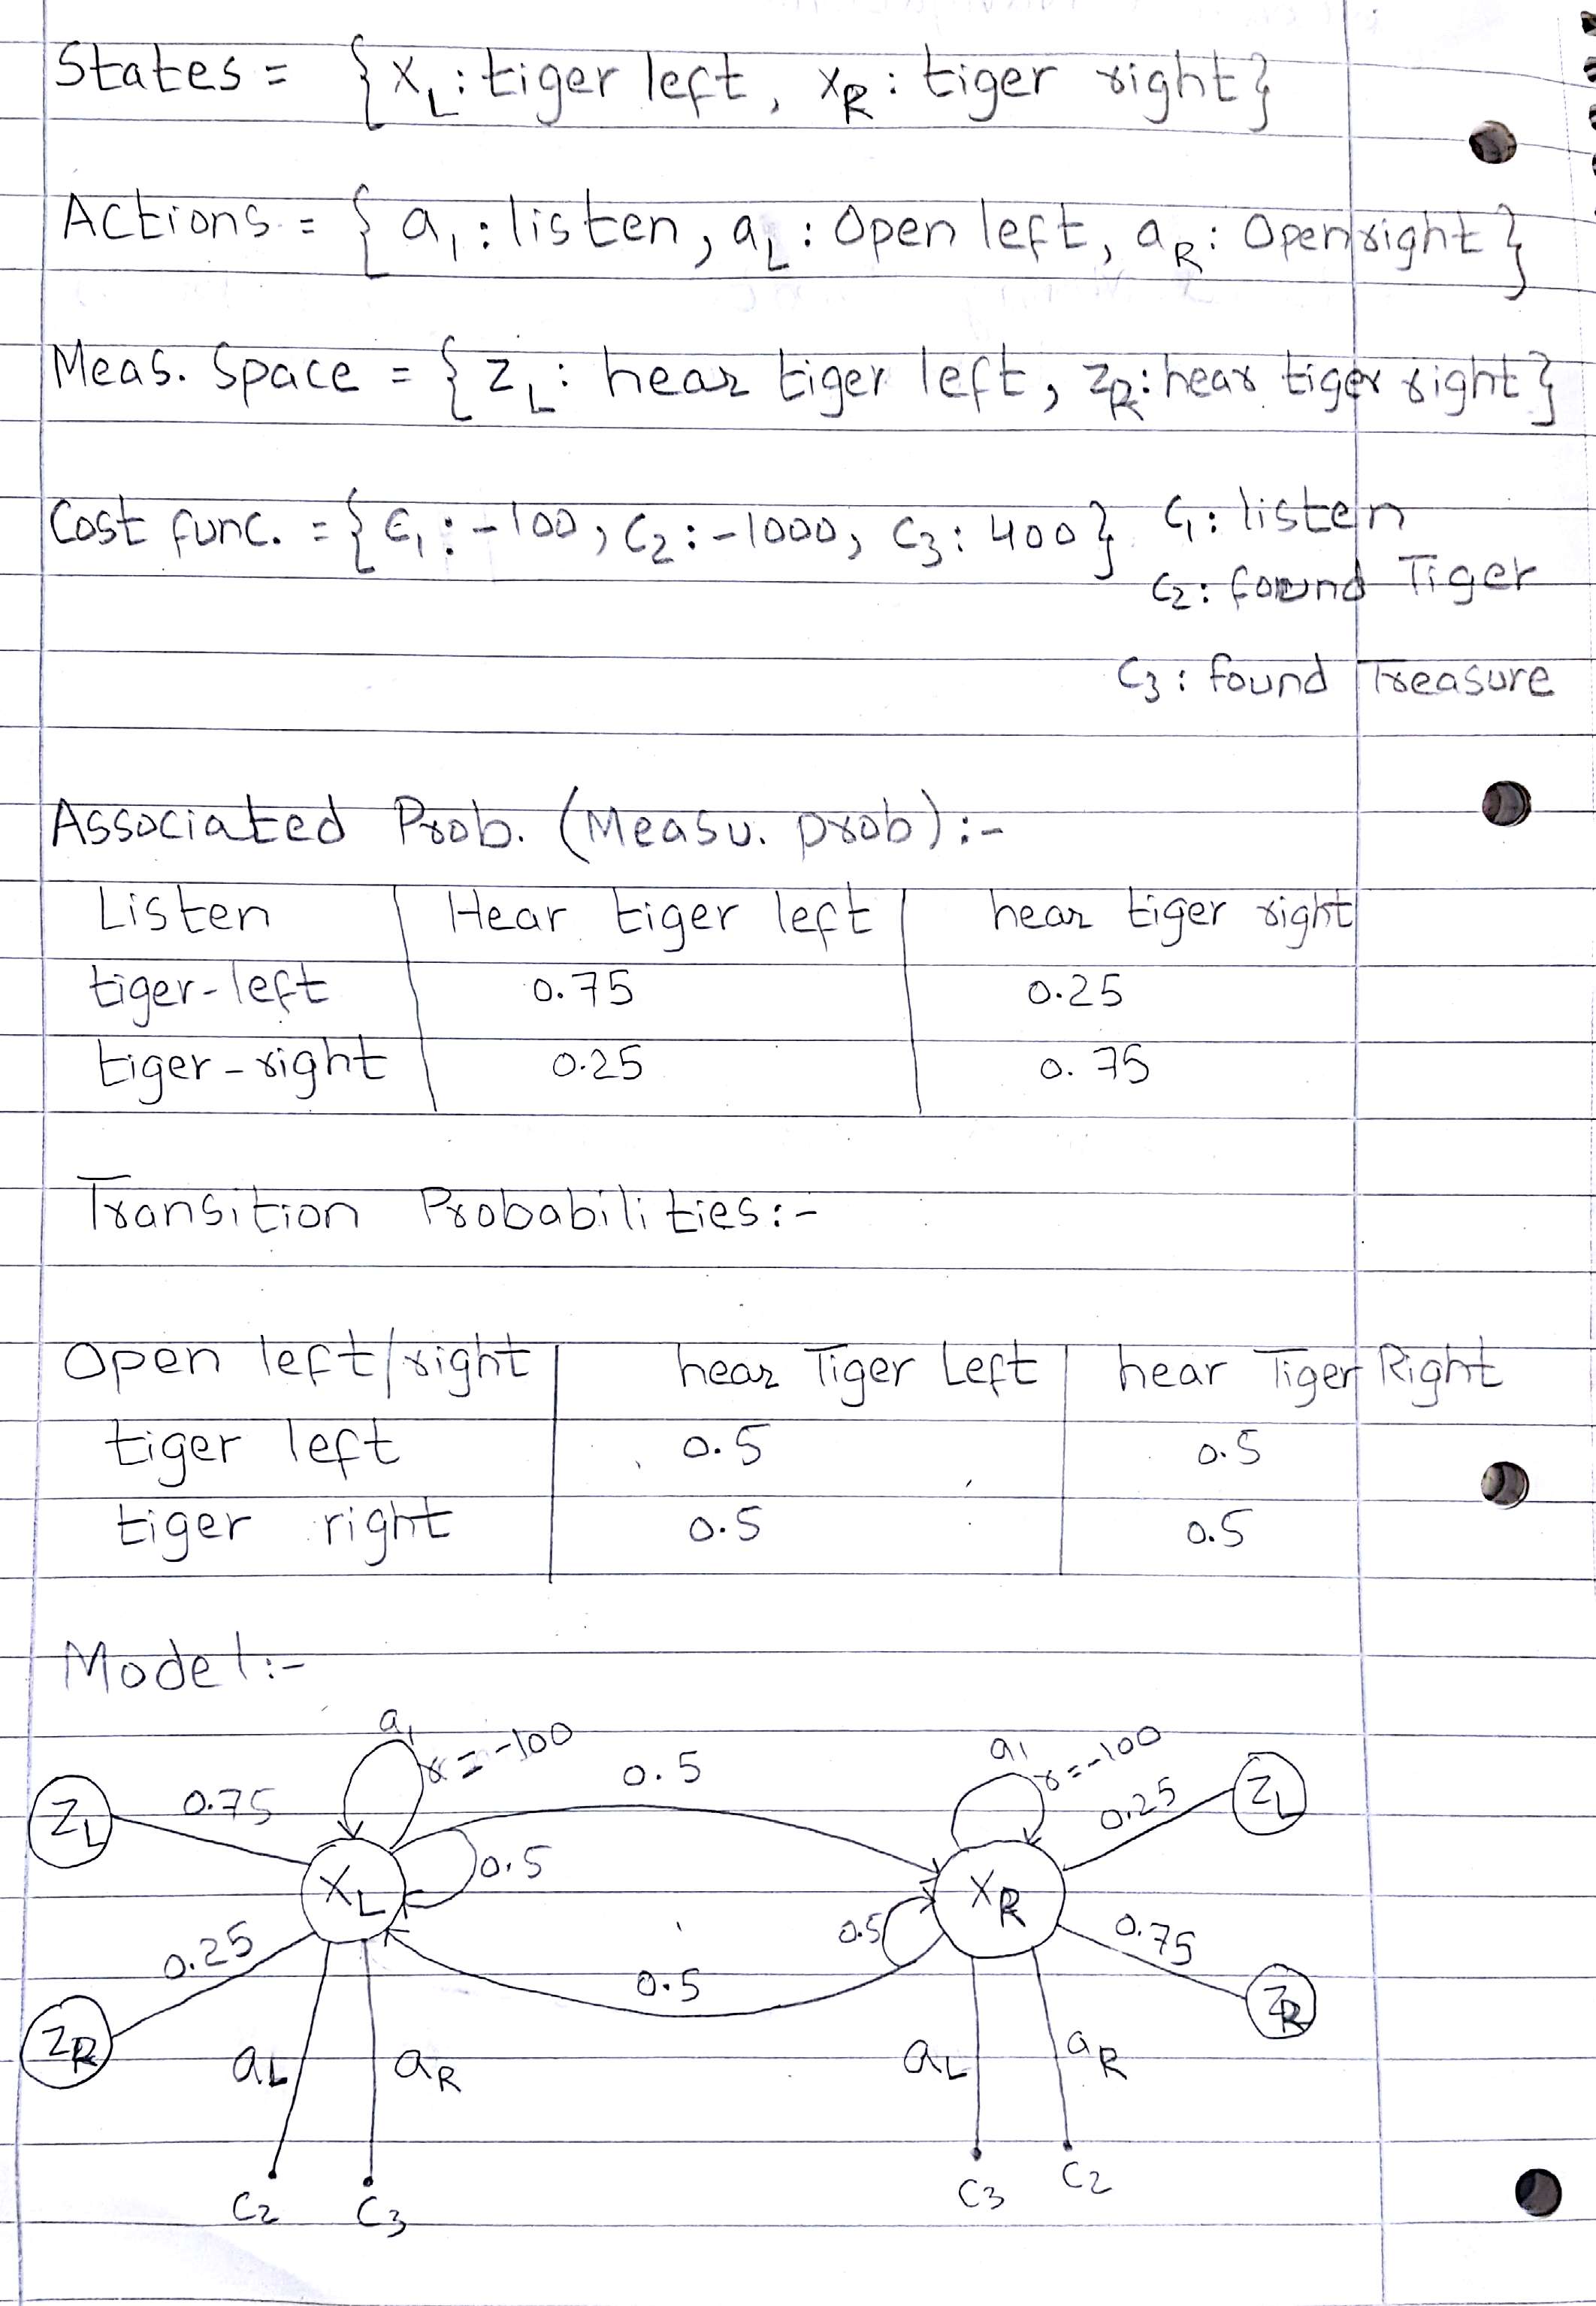 States = { X_L : tiger left, X_R : tiger right}
Actions = { a_1 : listen, a_L : Open left, a_R : Open right }
Meas. Space = { Z_L : hear tiger left, Z_R : hear tiger right}
Cost func. = { C_1 : -100, C_2 : -1000, C_3 : 400} C_1 : listen
C_2 : found Tiger
C_3 : found Treasure
Associated Prob. (Measu. prob) :-
Listen Hear tiger left hear tiger right
tiger-left 0.75 0.25
tiger-right 0.25 0.75
Transition Probabilities :-
Open left/right hear Tiger Left hear Tiger Right
tiger left 0.5 0.5
tiger right 0.5 0.5
Model :-
a_1 r = -100 0.5 a_1 r = -100
Z_L 0.75 0.25 Z_L
X_L 0.5 X_R
0.25 0.5 0.5 0.75
Z_R Z_R
a_L a_R a_L a_R
C_2 C_3 C_3 C_2